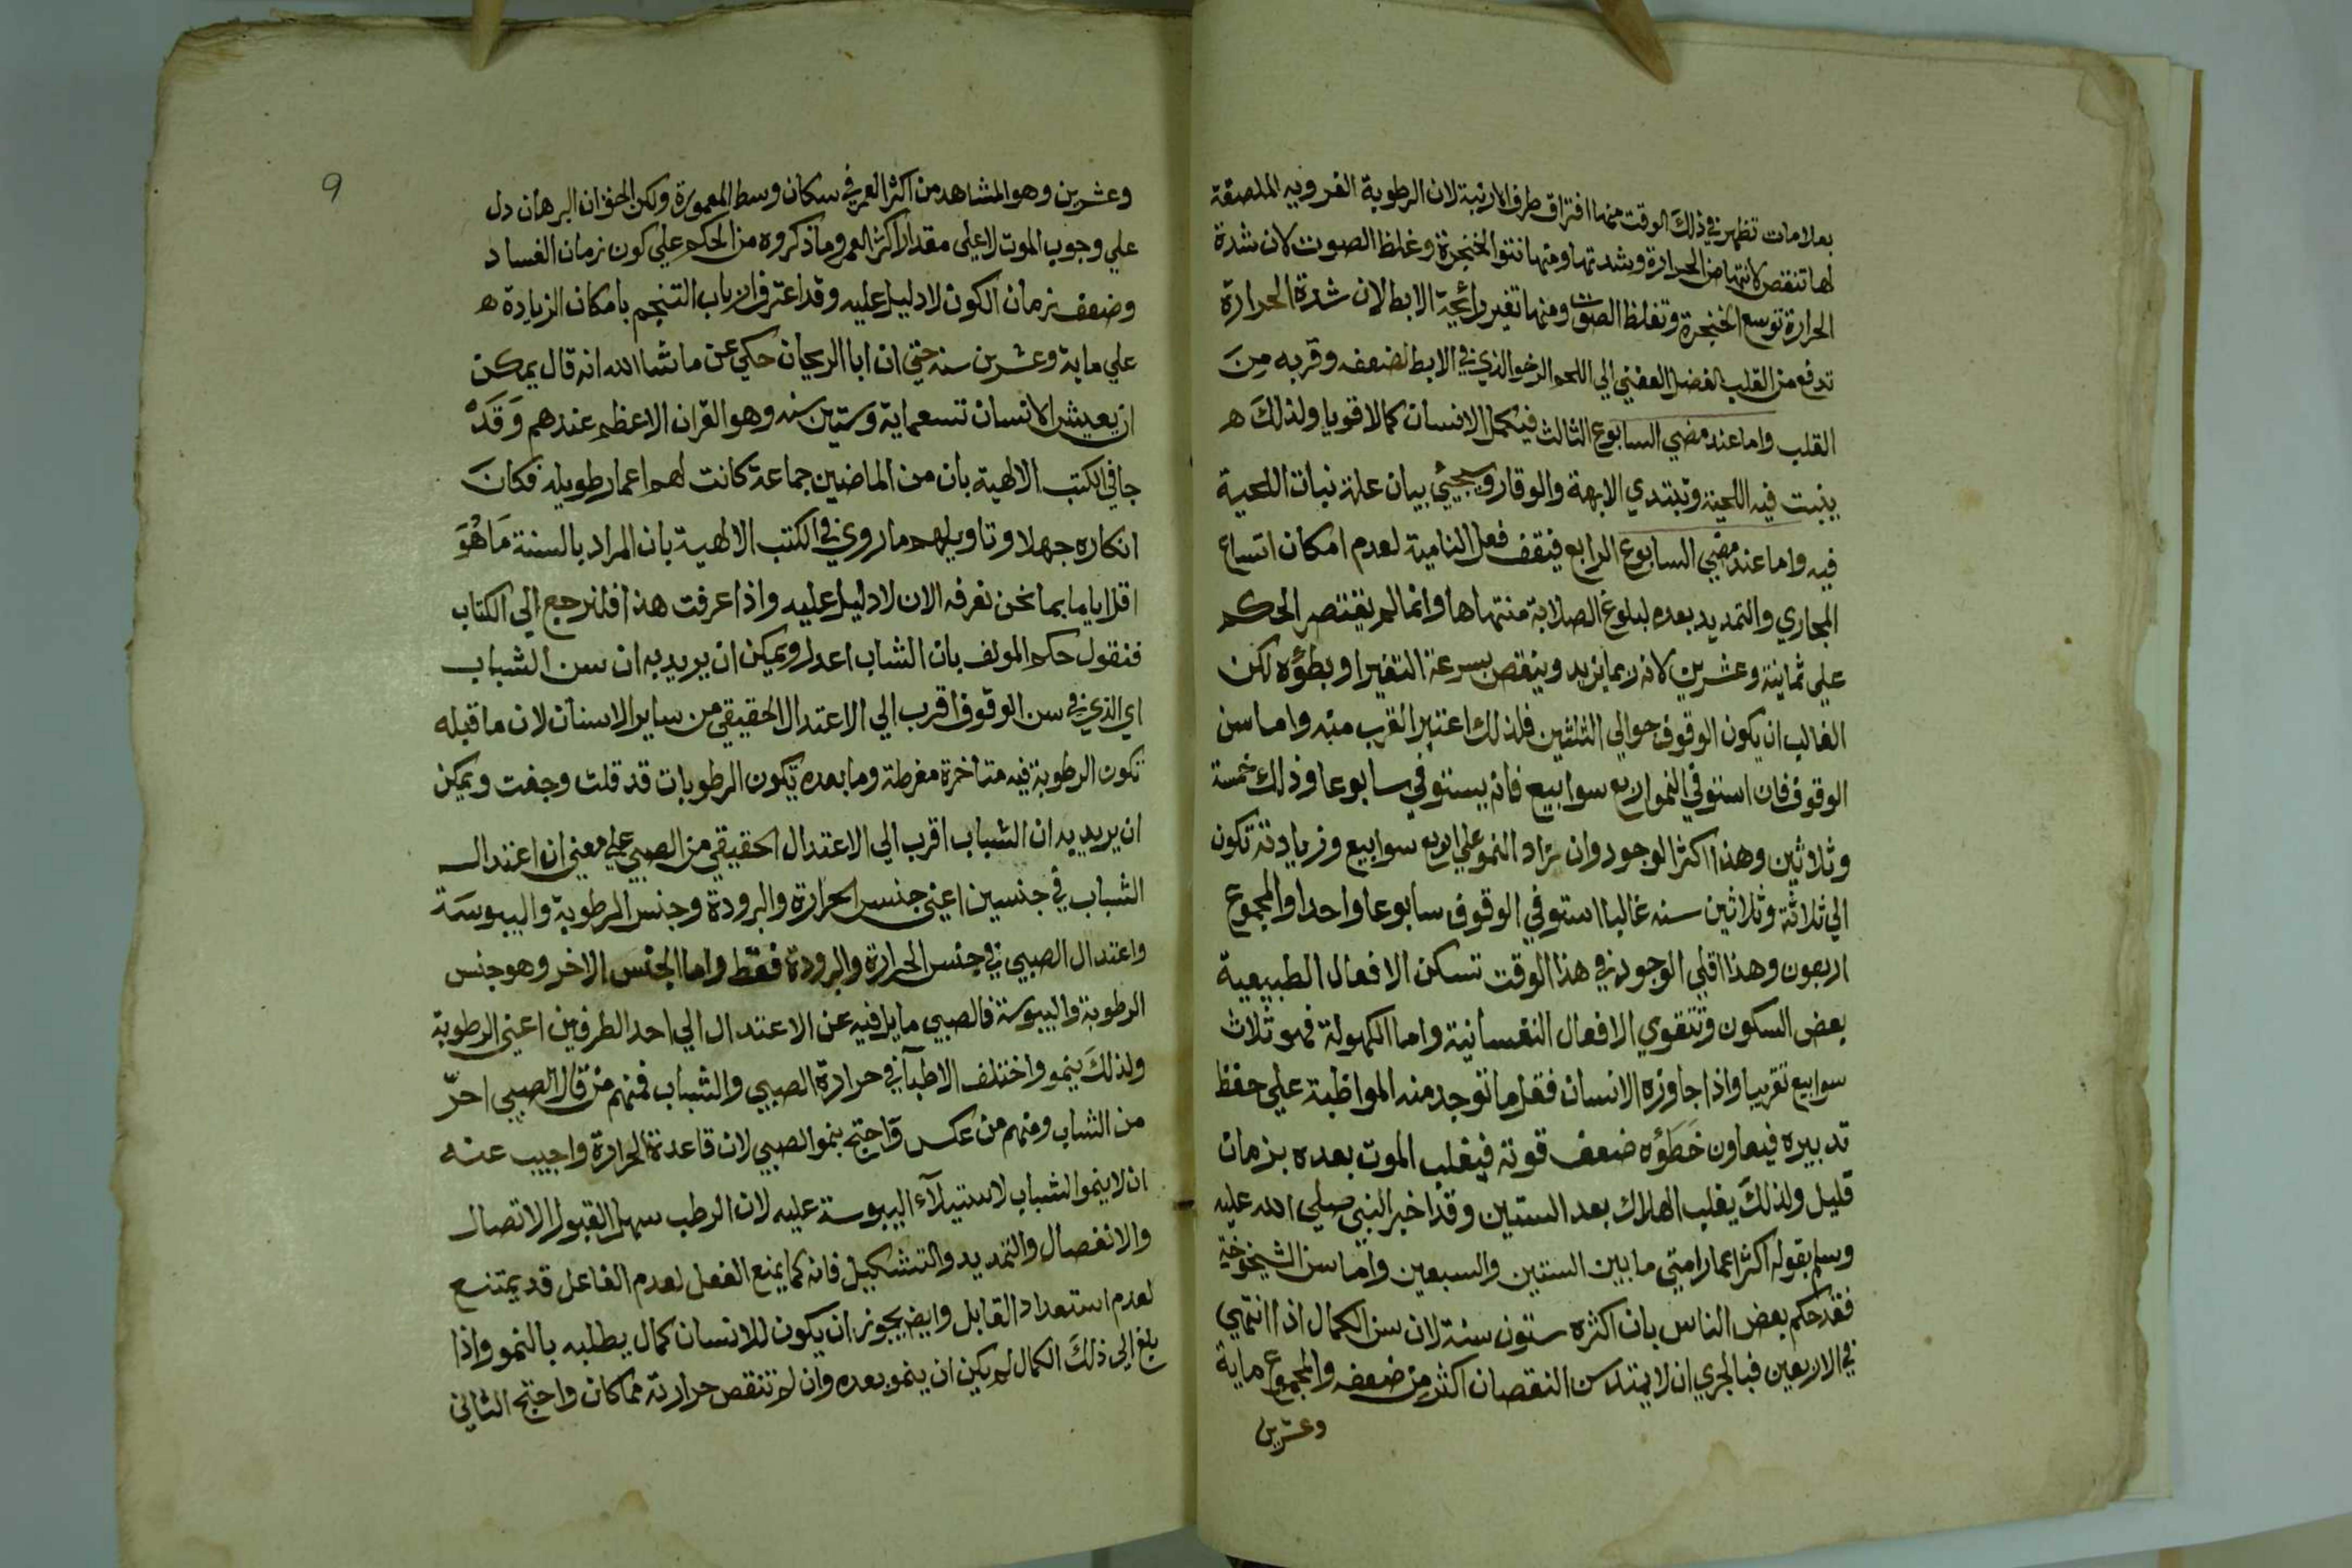 بعلامات تظهر في ذلك الوقت منها افتراق طرف الارنبة لان الرطوبة الغرويه الملصقة
لها تنقص لانتهاض الحرارة وشدتها ومنها نتوا الحنجرة وغلظ الصوت لان شدة
الحرارة توسع الحنجرة وتغلظ الصوت ومنها تغير رائحية الابط لان شدة الحرارة
تدفع من القلب الفضل العفني الي اللحم الرخو الذي في الابط لضعفه وقربه من
القلب واما عند مضي السابوع الثالث فيكمل الانسان كمالا قويا ولذلك ه
ينبت فيه اللحية وتبتدي الابهة والوقار وسيجيئ بيان علة نبات اللحية
فيه واما عند مضي السابوع الرابع فيقف فعل النامية لعدم امكان اتساع
المجاري والتمديد بعده لبلوغ الصلابة منتهاها وانما لم يقتصر الحكم
علي ثمانية وعشرين لانه ربما يزيد وينقص بسرعة التغير او بطؤه لكن
الغالب ان يكون الوقوف حوالي الثلثين فلذلك اعتبر القرب منه واما سن
الوقوف فان استوفي النمو اربع سوابيع فانه يستوفي سابوعا وذلك خمسة
وثلاثين وهذا اكثر الوجود وان زاد النمو علي اربع سوابيع وزيادته تكون
الي ثلاثة وثلاثين سنه غالبا استوفي الوقوف سابوعا واحدا والمجموع
اربعون وهذا اقلي الوجود في هذا الوقت تسكن الافعال الطبيعية
بعض السكون وتتقوي الافعال النفسانية واما الكهولة فهو ثلاث
سوابيع تقريبا واذا جاوزه الانسان فقل ما توجد منه المواظبة علي حفظ
تدبيره فيعاون خطؤه ضعف قوته فيغلب الموت بعده بزمان
قليل ولذلك يغلب الهلاك بعد الستين وقد اخبر النبي صلي الله عليه
وسلم بقوله اكثر اعمار امتي ما بين الستين والسبعين واما سن الشيخوخة
فقد حكم بعض الناس بان اكثره ستون سنة لان سن الكمال اذا انتهي
في الاربعين فبالحري ان لا يمتد سن النقصان اكثر من ضعفه والمجموع ماية
وعشرين
9
وعشرين وهو المشاهد من اكثر العمر في سكان وسط المعمورة ولكن الحق ان البرهان دل
علي وجوب الموت لا علي مقدار اكثر العمر وما ذكروه من الحكم علي كون زمان الفساد
وضعف زمان الكون لا دليل عليه وقد اعترف ارباب التنجيم بامكان الزيادة ه
علي ماية وعشرين سنه حتي ان ابا الريحان حكي عن ماشا الله انه قال يمكن
ان يعيش الانسان تسعماية وستين سنه وهو القران الاعظم عندهم وقد
جا في الكتب الالهية بان من الماضين جماعة كانت لهم اعمار طويله فكان
انكاره جهلا وتاويلهم ما روي في الكتب الالهية بان المراد بالسنة ما هو
اقل اياما بما نحن نعرفه الان لا دليل عليه واذا عرفت هذا فلنرجع الي الكتاب
فنقول حكم المولف بان الشاب اعدل ويمكن ان يريد به ان سن الشباب
اي الذي في سن الوقوف اقرب الي الاعتدال الحقيقي من ساير الاسنان لان ما قبله
تكون الرطوبة فيه متاخرة مفرطة وما بعده تكون الرطوبات قد قلت وجفت ويمكن
ان يريد به ان الشباب اقرب الي الاعتدال الحقيقي من الصبي علي معني ان اعتدال
الشباب في جنسين اعني جنس الحرارة والبرودة وجنس الرطوبة واليبوسة
واعتدال الصبي في جنس الحرارة والبرودة فقط واما الجنس الاخر وهو جنس
الرطوبة واليبوسة فالصبي مايل فيه عن الاعتدال الي احد الطرفين اعني الرطوبة
ولذلك ينمو واختلف الاطبآ في حرارة الصبي والشباب فمنهم من قال الصبي احرّ
من الشاب ومنهم من عكس واحتج بنمو الصبي لان قاعدة الحرارة واجيب عنه
ان لا ينمو الشباب لاستيلآء اليبوسة عليه لان الرطب سهل القبول الاتصال
والانفصال والتمديد والتشكيل فانه كما يمنع الفعل لعدم الفاعل قد يمتنع
لعدم استعداد القابل وايض يجوز ان يكون للانسان كمال يطلبه بالنمو واذا
بلغ الي ذلك الكمال لم يكن ان ينمو بعده وان لم تنقص حرارته مما كان واحتج الثاني